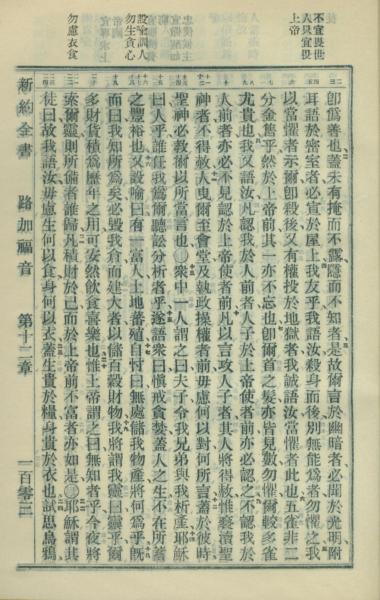 不宜畏世
人只宜畏
上帝
設喻訓人
勿生貪心
勿慮衣食
卽僞善也蓋未有掩而不露隱而不知者是故爾言於幽暗者必聞於光明附
耳語於密室者必宣於屋上我友乎我語汝殺身而後別無能爲者勿懼之我
以當懼者示爾卽殺後又有權投於地獄者我誠語汝當懼者此也五雀非二
分金售乎然於上帝前其一亦不忘也卽爾首之髮亦皆見數勿懼爾較多雀
尤貴也我又語汝凡認我於人前者人子於上帝使者前亦必認之不認我於
人前者亦必不見認於上帝使者前凡以言攻人子者其人將得赦惟褻瀆聖
神者不得赦人曳爾至會堂及執政操權者前毋慮何以對何所言蓋於彼時
聖神必敎爾以所當言也〇衆中一人謂之曰夫子令我兄弟與我析產耶穌
曰人乎誰任我爲爾聽訟分析者乎遂語衆曰愼戒貪婪蓋人之生不在所蓄
之豐裕也又設喻曰有一富人土地蕃殖自忖曰無處儲我物產將何爲乎旣
而曰我知所爲矣必毁我倉而建大者以儲百穀財物我將謂我靈曰靈乎爾
多財貨積爲歷年之用可安然飮食喜樂也惟上帝謂之曰無知者乎今夜將
索爾靈則所備者誰歸凡積財於己而於上帝前不富者亦如是〇耶穌謂其
徒曰故我語汝毋慮生何以食身何以衣蓋生貴於糧身貴於衣也試思烏鴉
新約全書 路加福音 第十二章 一百零三